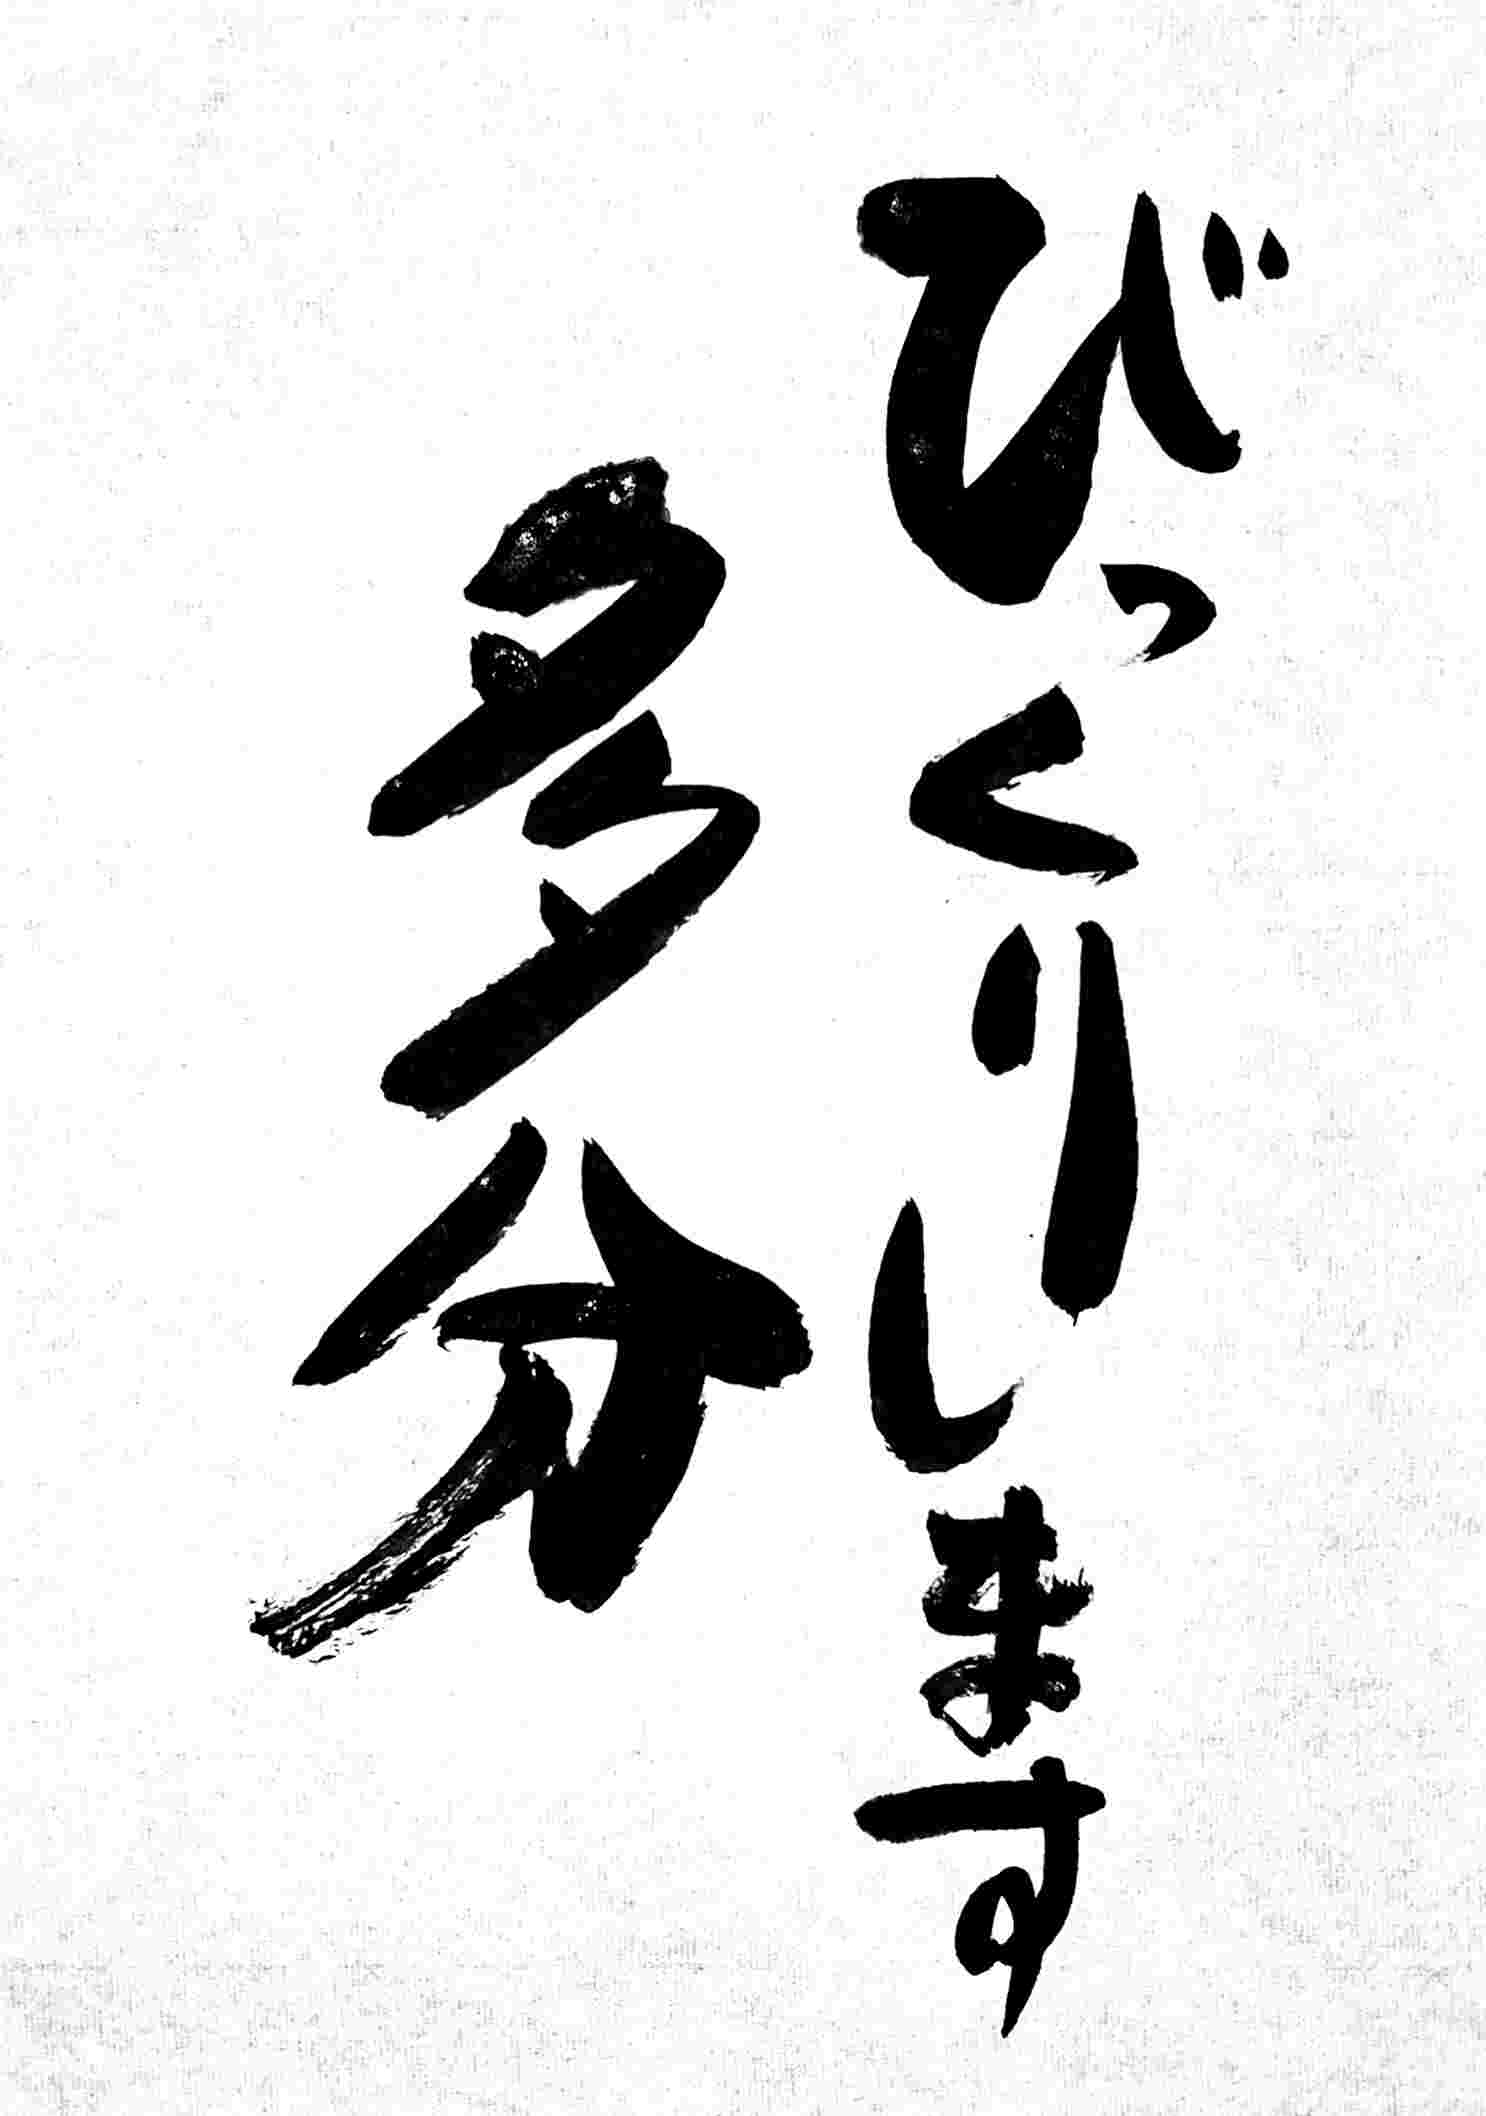 びっくりします
多分